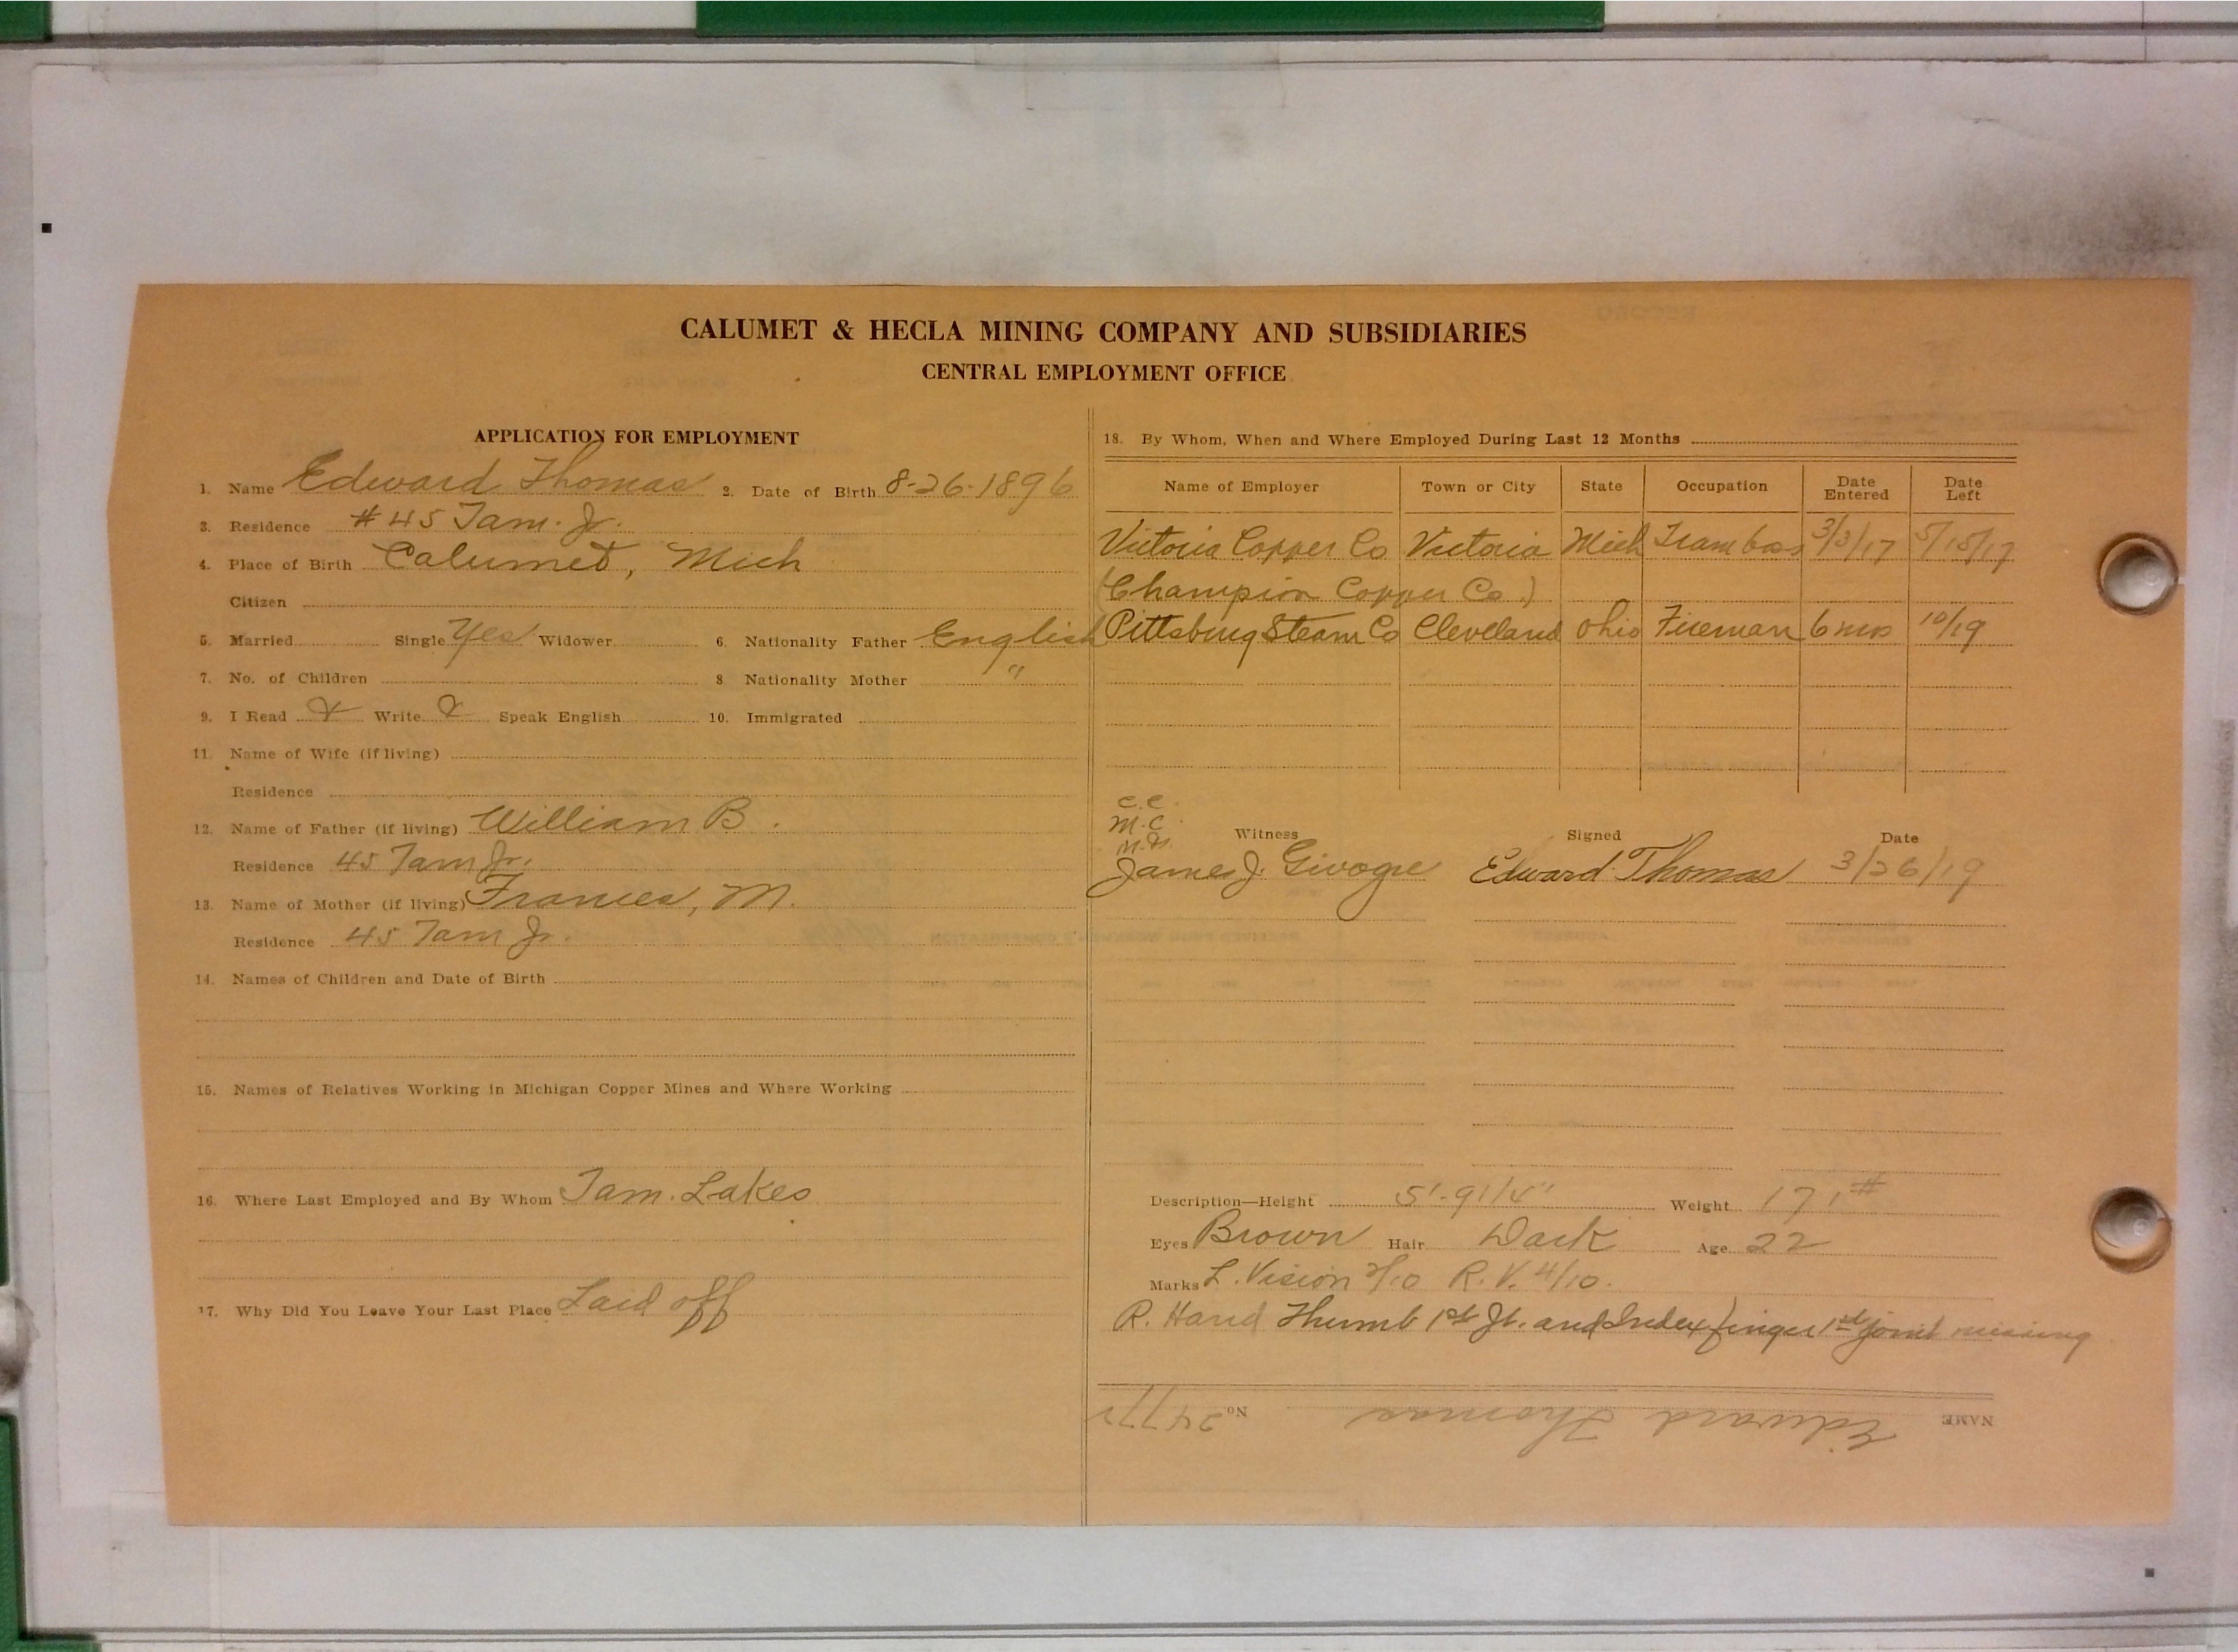 CALUMET & HECLA MINING COMPANY AND SUBSIDIARIES
CENTRAL EMPLOYMENT OFFICE
APPLICATION FOR EMPLOYMENT
1. Name Edward Thomas 2. Date of Birth 8-26-1896
3. Residence #45 Tam. Jr.
4. Place of Birth Calumet, Mich
Citizen
5. Married Single Yes Widower 6. Nationality Father English
7. No. of Children 8 Nationality Mother "
9. I Read Write Speak English 10. Immigrated
11. Name of Wife (if living)
Residence
12. Name of Father (if living) William B.
Residence 45 Tam Jr.
13. Name of Mother (if living) Frances, M.
Residence 45 Tam Jr.
14. Names of Children and Date of Birth
15. Names of Relatives Working in Michigan Copper Mines and Where Working
16. Where Last Employed and By Whom Tam. Lakes
17. Why Did You Leave Your Last Place Laid off
18. By Whom, When and Where Employed During Last 12 Months
Name of Employer Town or City State Occupation Date Entered Date Left
Victoria Copper Co Victoria Mich Tram boss 3/3/17 5/15/17
(Champion Copper Co.)
Pittsburg Steam Co Cleveland Ohio Fireman 6 mos 10/19
C.C.
M.C.
Witness Signed Date
James J. Edward Thomas 3/26/19
Description—Height 5'-9 1/4" Weight 171#
Eyes Brown Hair Dark Age 22
Marks L. Vision 2/10 R. V. 4/10.
R. Hand Thumb 1st Jt. and Index finger 1st joint missing
NAME Edward Thomas No.